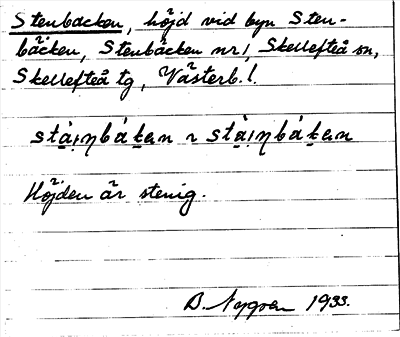 Stenbacken, höjd vid byn Sten-
bäcken, Stenbäcken nr 1, Skellefteå sn,
Skellefteå tg, Västerb. l.
stὰi̯ŋbákan ~ stὰi̯ŋbákan
Höjden är stenig.
B. Nygren 1933.